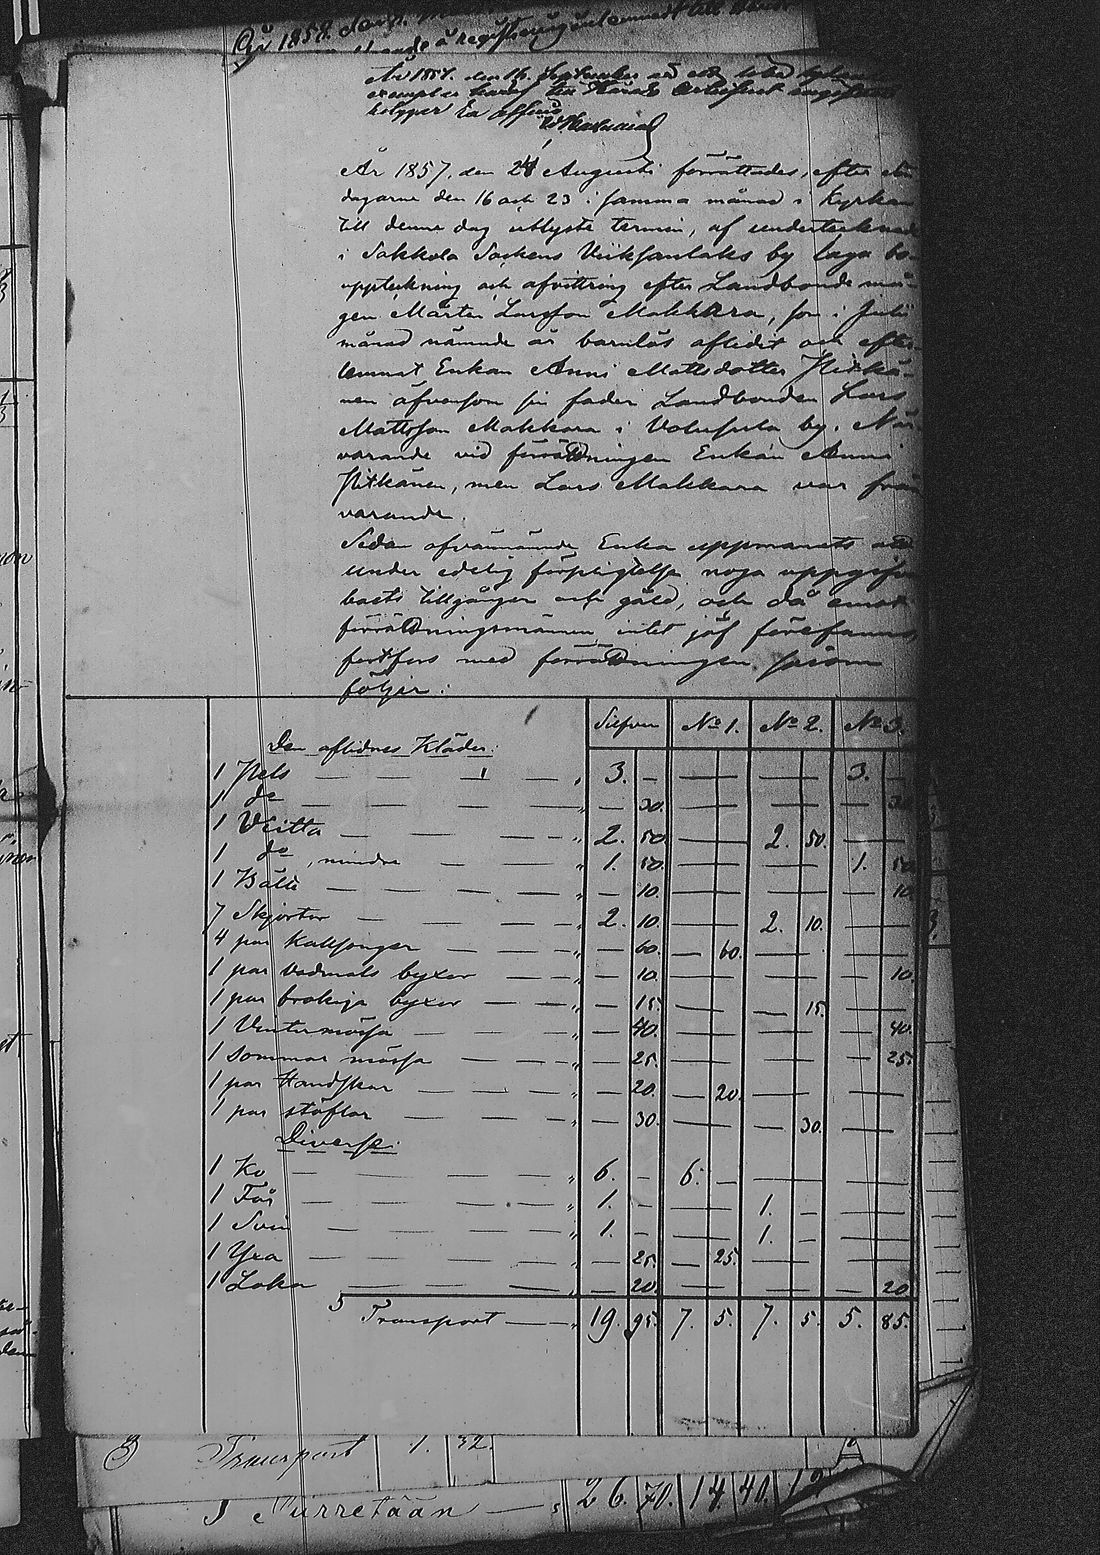 År 1858. den
År 1857. den 16 September
exemplar häraf till Härads
År 1857, den 24 Augusti förrättades, efter
dagarne den 16 och 23 i samma månad i Kyrkan
till denne dag utlyste termin, af undertecknade
i Sakkola Sockens Viiksanlaks by laga bo-
uppteckning och afvittring efter Landbonde må-
gen Mårten Larsson Makkara, som i Juli
månad nämnde år barnlös aflidit och efter-
lemnat Enkan Anni Mattsdotter Pitkä-
nen äfvensom sin fader Landbonden Lars
Mattsson Makkara i Volusula by. När
varande vid förrättningen Enkan Anni
Pitkänen, men Lars Makkara var från
varande.
Sedan ofvannämnde Enka uppmanats att
under edelig förpligtelse noga uppgifva
boets tillgångar och gäld, och då emot
förrättningsmännen intet jäf förefanns
fortfors med förrättningen såsom
följer:
Silfver No 1. No 2. No 3.
Den aflidnes Kläder:
1 Pels — — — " 3. – — — 3. –
1 do — — — " — 30. — — — 30.
1 Viitta — — — " 2. 50. — 2. 50. —
1 do, mindre — — " 1. 50. — — 1. 50.
1 Bälte — — — " — 10. — — — 10.
7 Skjortor — — — " 2. 10. — 2. 10. —
4 par Kalsonger — — " — 60. — 60. — —
1 par vadmals byxor — — " — 10. — — — 10.
1 par brokiga byxor — — " — 15. — — 15. —
1 Vintermössa — — — " — 40. — — — 40.
1 Sommar mössa — — " — 25. — — — 25.
1 par Handskar — — " — 20. — 20. — —
1 par stöflar — — " — 30. — — 30. —
Diverse:
1 Ko — — — " 6. – 6. – — —
1 Får — — — " 1. – — 1. – —
1 Svin — — — " 1. – — 1. – —
1 Yxa — — — " — 25. — 25. — —
1 Loka — — — " — 20. — — — 20.
Transport — " 19. 95. 7. 5. 7. 5. 5. 85.
Transport 1. 32.
26. 70. 14. 40.